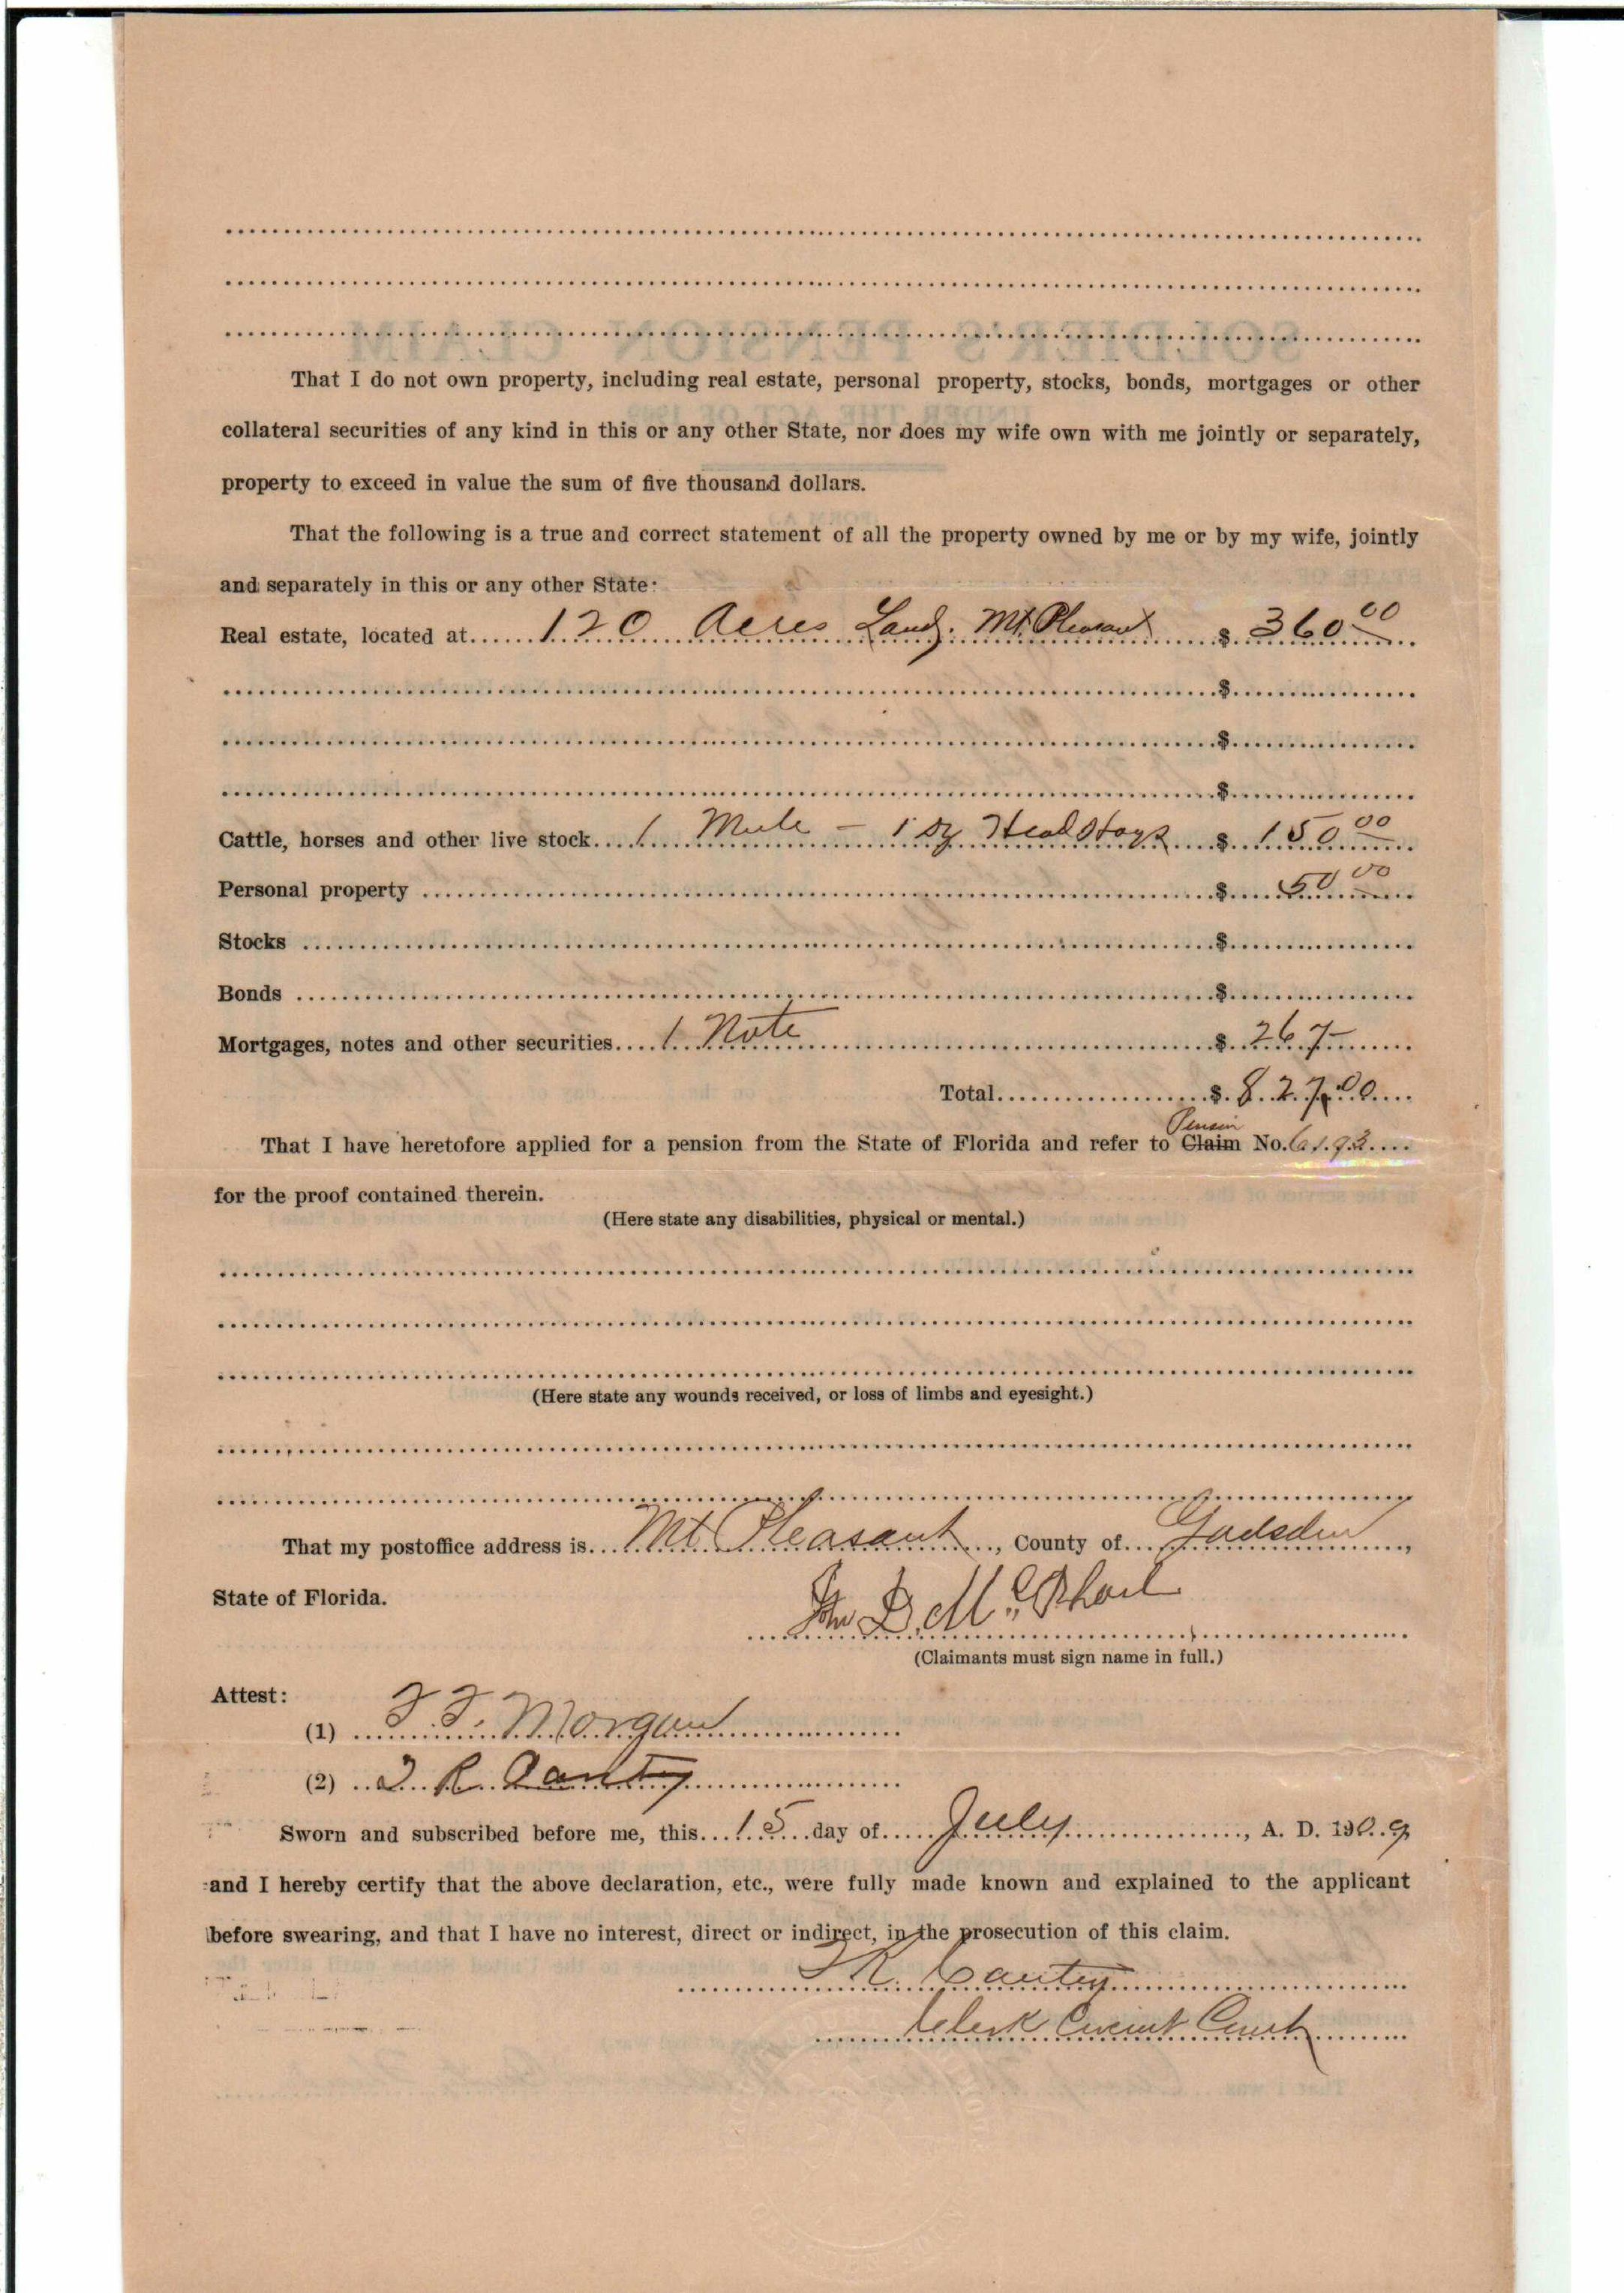 That I do not own property, including real estate, personal property, stocks, bonds, mortgages or other
collateral securities of any kind in this or any other State, nor does my wife own with me jointly or separately,
property to exceed in value the sum of five thousand dollars.
That the following is a true and correct statement of all the property owned by me or by my wife, jointly
and separately in this or any other State:
Real estate, located at 120 Acres Land, Mt. Pleasant $ 360.00
$
$
$
Cattle, horses and other live stock 1 Mule - 15 Head Hogs $ 150.00
Personal property $ 50.00
Stocks $
Bonds $
Mortgages, notes and other securities 1 Note $ 267
Total $ 827.00
Pension
That I have heretofore applied for a pension from the State of Florida and refer to Claim No. 6193
for the proof contained therein.
(Here state any disabilities, physical or mental.)
(Here state any wounds received, or loss of limbs and eyesight.)
That my postoffice address is Mt Pleasant, County of Gadsden,
State of Florida.
Jno D. McPhaul
(Claimants must sign name in full.)
Attest:
(1) Morgan
(2) R Canty
Sworn and subscribed before me, this 15 day of July, A. D. 1909
and I hereby certify that the above declaration, etc., were fully made known and explained to the applicant
before swearing, and that I have no interest, direct or indirect, in the prosecution of this claim.
R. Cantey
Clerk Circuit Court